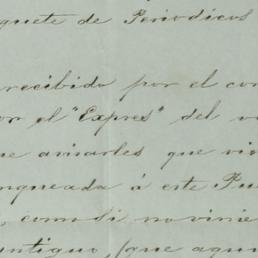 quete de Periodicos
recibido por el con
or el "Expres" del va
ue avisarles que vi
nqueada á este Pu
, como si no vinie
antiguo, (que aqui